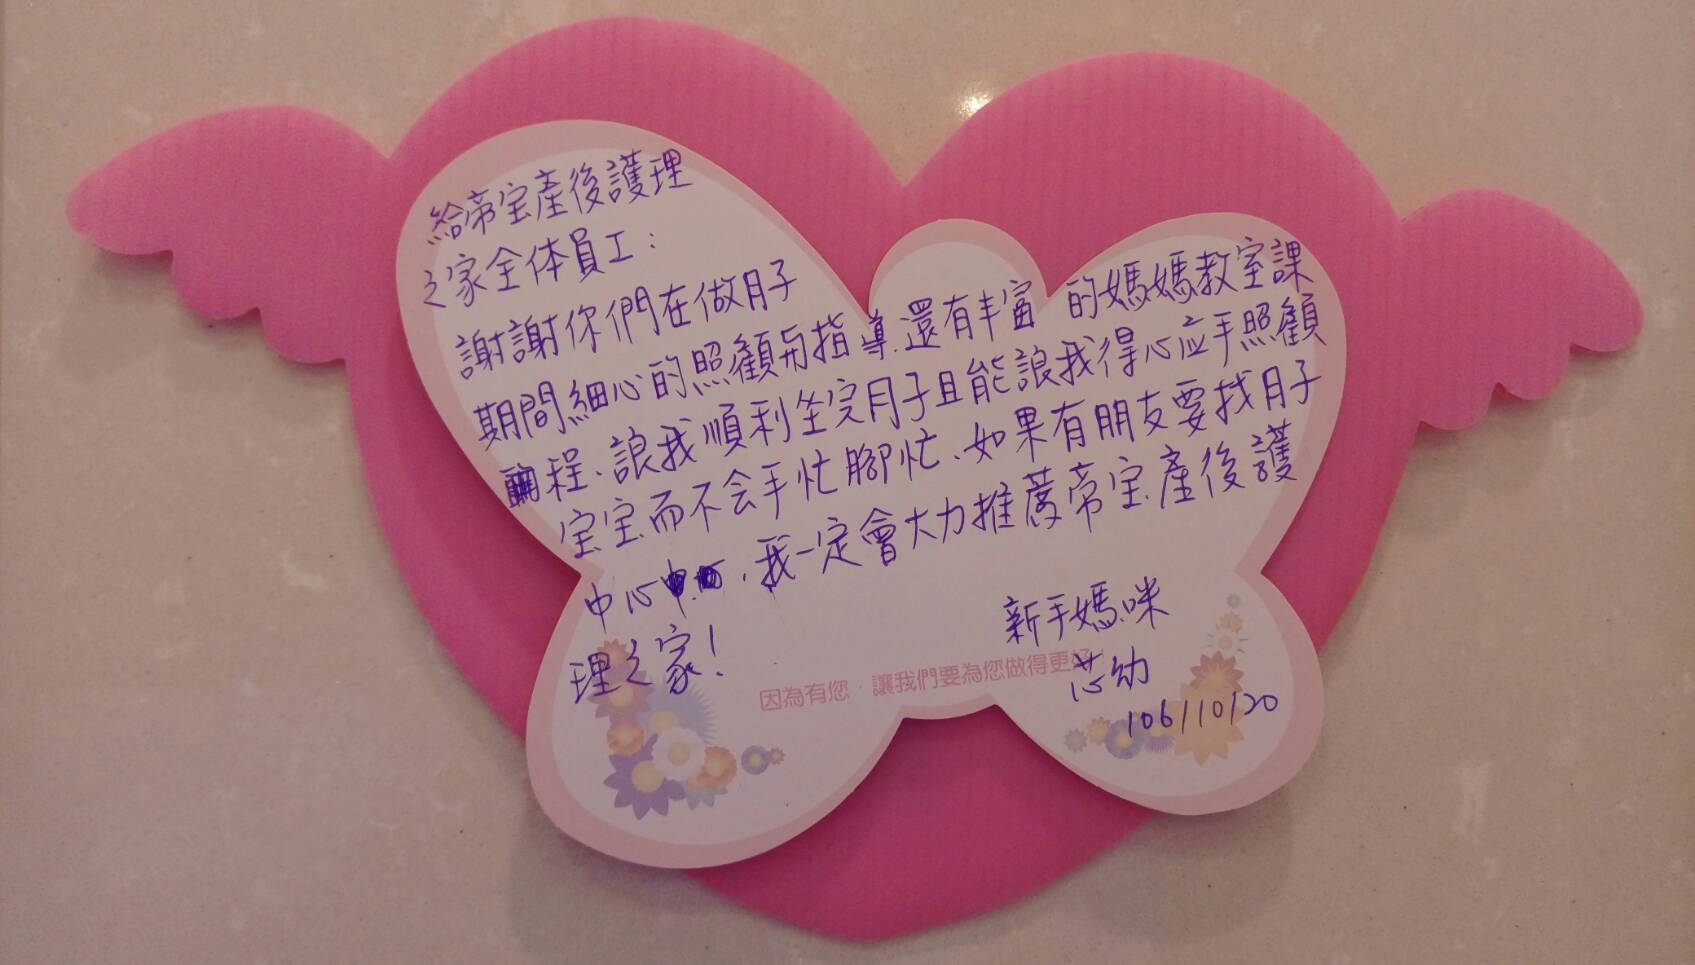 給帝宝產後護理
之家全体員工：
謝謝你們在做月子
期間細心的照顧与指導、還有丰富的媽媽教室課
程、讓我順利坐完月子且能讓我得心应手照顧
宝宝而不会手忙腳忙、如果有朋友要找月子
中心，我一定會大力推薦帝宝產後護
理之家！
新手媽咪
芯幼
106/10/20
因為有您，讓我們要為您做得更好！